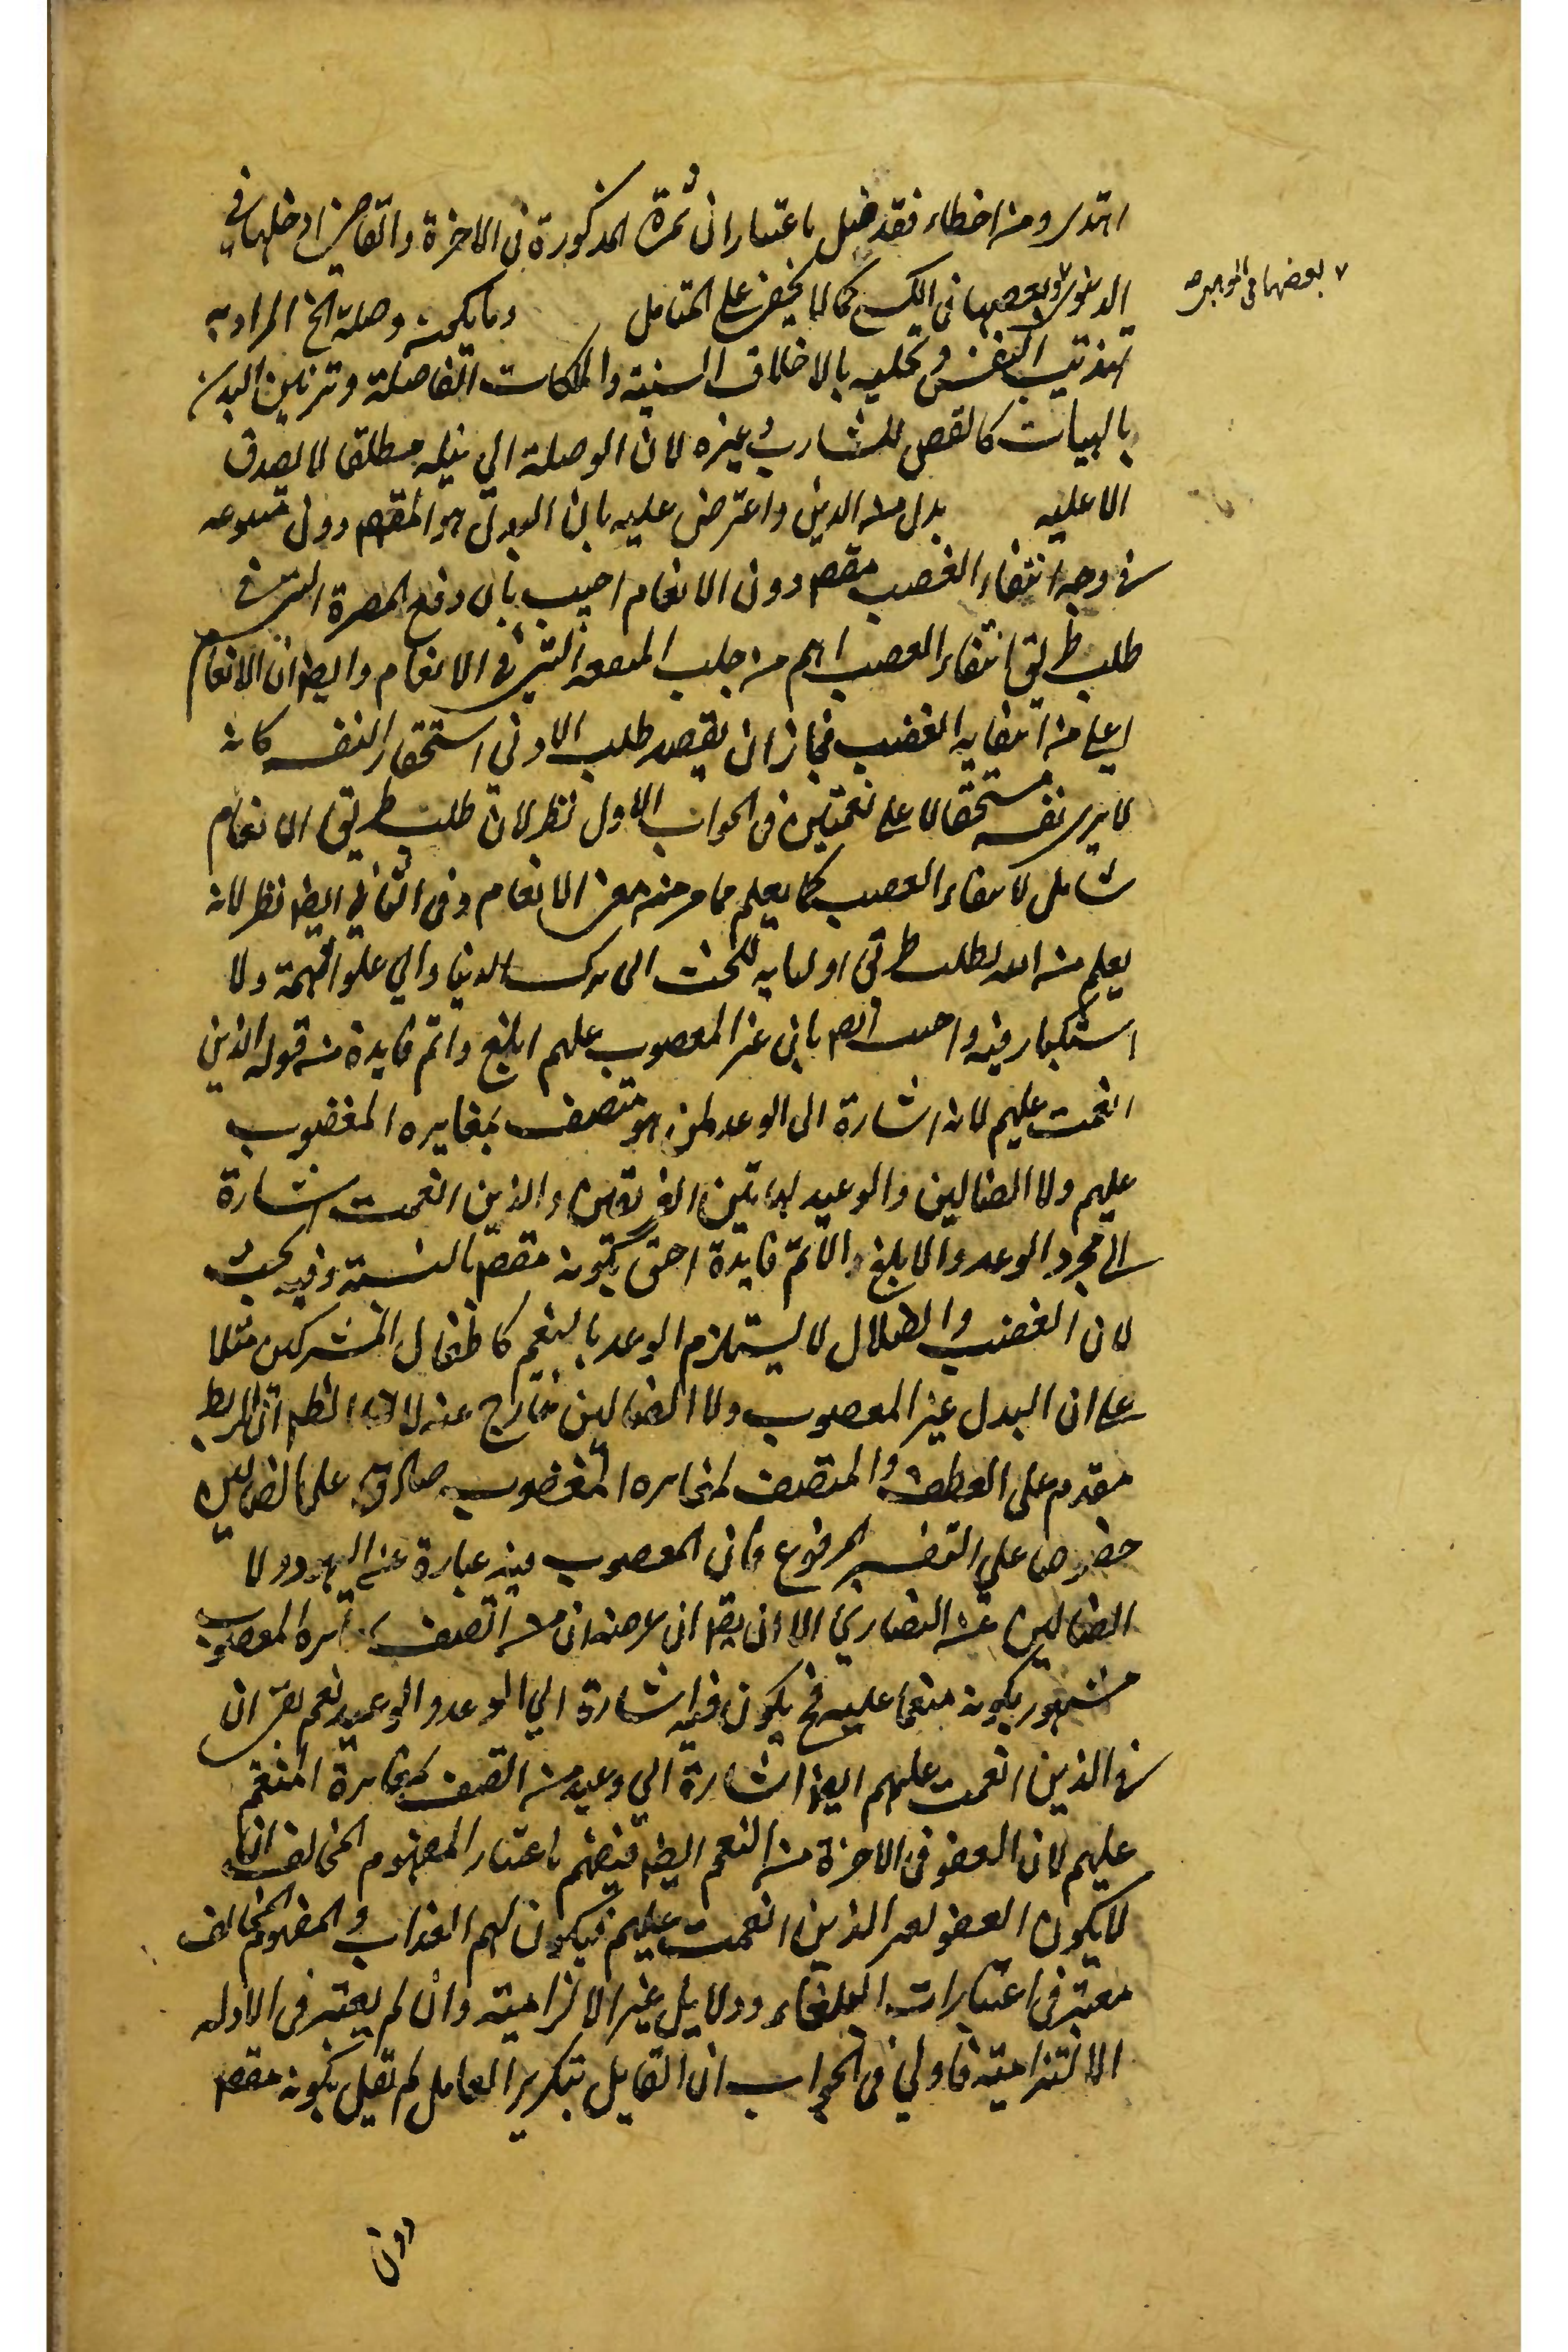 اهتدى ومن اخطاء فقد ضل باعتبار ان ثمرة المذكورة فى الاخرة والقاضى ادخلها فى
الدنيوى وبعضها فى الكسبى كما لا يخفى على المتامل وما يكون وصلة الخ المراد به
بعضها فى الموهبى صه
تهذيب النفس وتحليه بالاخلاق السنية والملكات الفاضلة وتزيين البدن
بالهيات كالقص للشارب وغيره لان الوصلة الى نيله مطلقا لا يصدق
الا عليه بدل من الذين واعترض عليه بان البدل هو المقصم دون متبوعه
فى وجه انتفاء الغضب مقصم دون الانعام اجيب بان دفع المضرة التى فى
طلب طريق انتفاء الغضب اهم من جلب المنفعة التى فى الانعام وايضا ان الانعام
اعلى من انتفاء الغضب فجاز ان يقصد طلب الادنى استحقار النفسه كانه
لا يرى نفسه مستحقا لا على نعمتين فى الجواب الاول نظر لان طلب طريق الانعام
شامل لانتفاء الغضب كما يعلم مما مر منه معنى الانعام وفى الثانى ايضا نظر لانه
يعلم من الله لطلب طريق اوليايه للحث الى ترك الدنيا والى علو الهمة ولا
استكبار فيه واجيب ايضا بان غير المغضوب عليهم ابلغ واتم فايدة من قوله الذين
انعمت عليهم لانه اشارة الى الوعد لمن هو متصف بمغايره المغضوب
عليهم ولا الضالين والوعيد لهاتين الفريقين والذين انعمت اشارة
الى مجرد الوعد والابلغ والاتم فايدة احق بكونه مقصم بالنسبة وفيه بحث
لان الغضب والضلال لا يستلزم الوعد بالنعيم كاطفال المشركين مثلا
على ان البدل غير المغضوب ولا الضالين خارج عنه لان الظم ان الربط
مقدم على العطف والمتصف لمغايره المغضوب صادق على الضالين
خصوصا على التفسير المرفوع فان المغضوب فيه عبارة عن اليهود ولا
الضالين عن النصارى الا ان يقم ان غرضه ان من اتصف بمغايره المغضوب
مشهور بكونه منعما عليه فح يكون فيه اشارة الى الوعد والوعيد نعم بقى ان
فى الذين انعمت عليهم ايضا اشارة الى وعيد من اتصف بمغايرة المنعم
عليهم لان العفو فى الاخرة من النعم ايضا فيفهم باعتبار المفهوم المخالف ان
لا يكون العفو لغير الذين انعمت عليهم فيكون لهم العذاب والمفهوم المخالف
معتبر فى اعتبارات البلغاء ودلايل غير الالزامية وان لم يعتبر فى الادلة
الالتزامية فاولى فى الجواب ان القايل بتكرير العامل لم يقل بكونه مقصم
دون